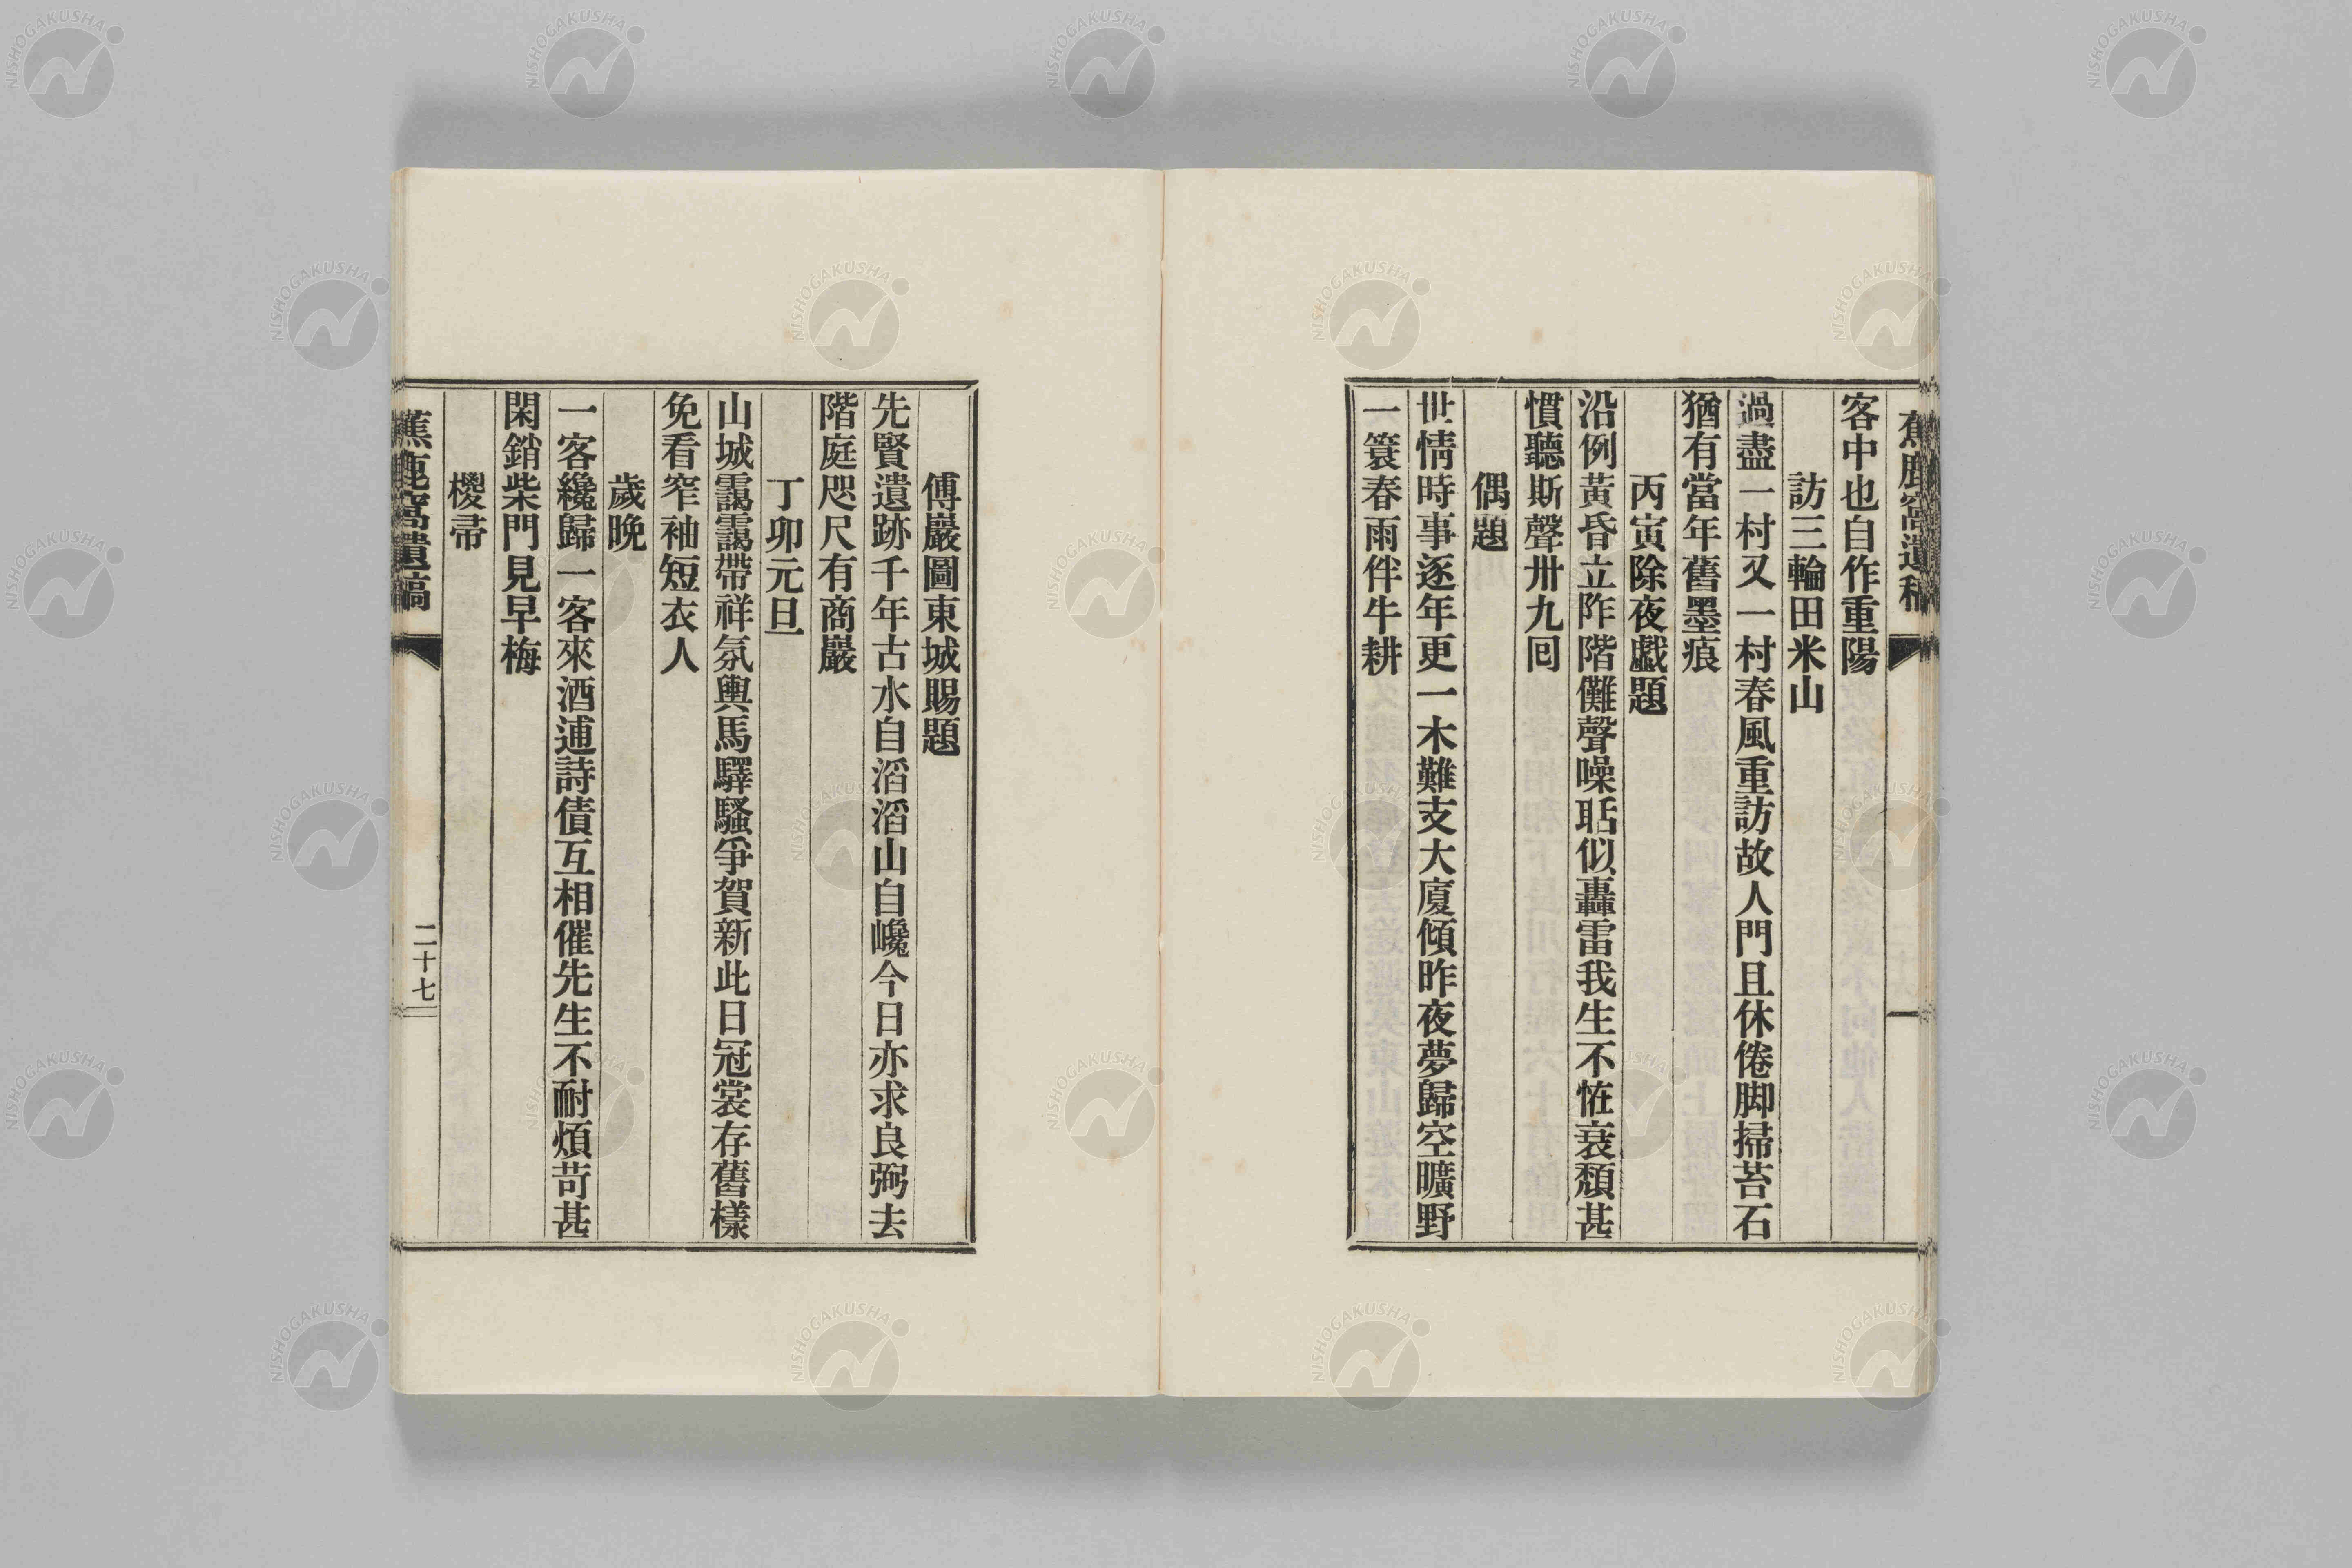 蕉鹿窩遺稿
客中也自作重陽
訪三輪田米山
過盡一村又一村春風重訪故人門且休倦脚掃苔石
猶有當年舊墨痕
丙寅除夜戲題
沿例黃昏立阼階儺聲噪聒似轟雷我生不恠衰頽甚
慣聽斯聲卅九回
偶題
世情時事逐年更一木難支大廈傾昨夜夢歸空曠野
一簑春雨伴牛耕
傅巖圖東城賜題
先賢遺跡千年古水自滔滔山自巉今日亦求良弼去
階庭咫尺有商巖
丁卯元旦
山城靄靄帶祥氛輿馬驛騷爭賀新此日冠裳存舊樣
免看窄袖短衣人
歲晚
一客纔歸一客來酒逋詩債互相催先生不耐煩苛甚
閑銷柴門見早梅
椶帚
蕉鹿窩遺稿
二十七
NISHOGAKUSHA